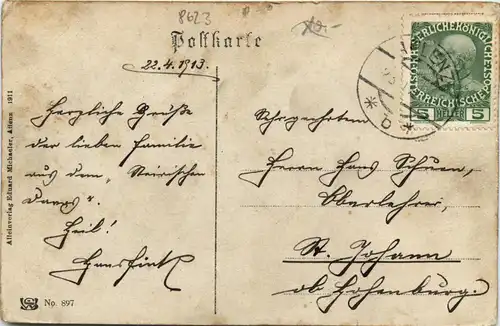 8623
Postkarte
22.4.1913.
Herzliche Grüße
der lieben Familie
aus dem „Steirischen
Heil!
Hans
Sehr geehrten
Herrn Hans
Oberlehrer,
St. Johann
ob Hohenburg.
KAISERLICHE KÖNIGLICHE ÖSTERREICHISCHE POST
5 HELLER 5
Alleinverlag Eduard Michaeler, Aflenz 1911
No. 897